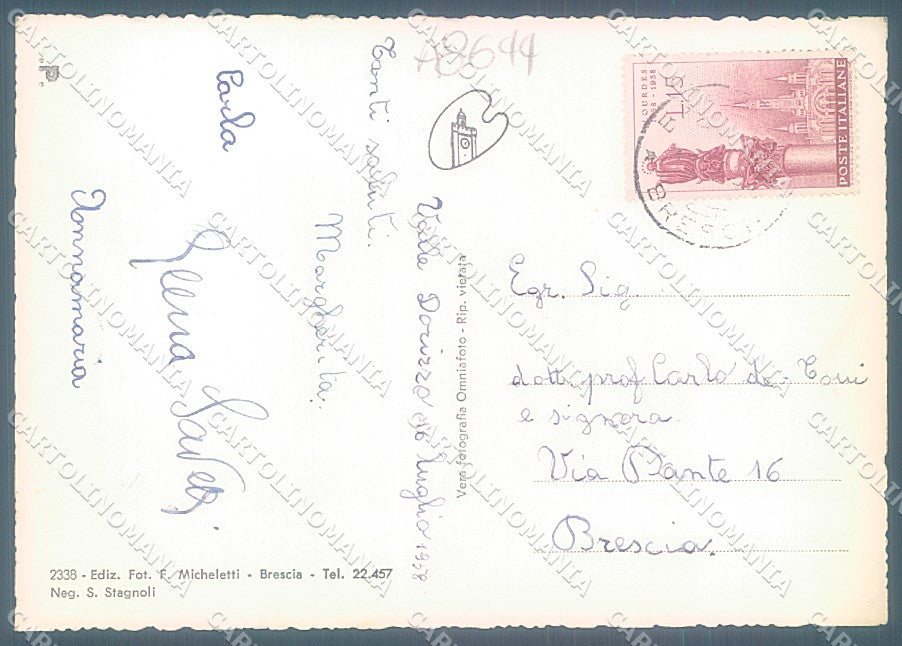 A8644
Valle Dorizzo 20 luglio 1958
Tanti saluti.
Margherita.
Carla
Annamaria
Vera fotografia Omniafoto - Rip. vietata
LOURDES
1858 - 1958
L. 15
POSTE ITALIANE
BRESCIA
Egr. Sig.
dott. prof Carlo de-Toni
e signora
Via Dante 16
Brescia.
2338 - Ediz. Fot. F. Micheletti - Brescia - Tel. 22.457
Neg. S. Stagnoli
CARTOLINOMANIA